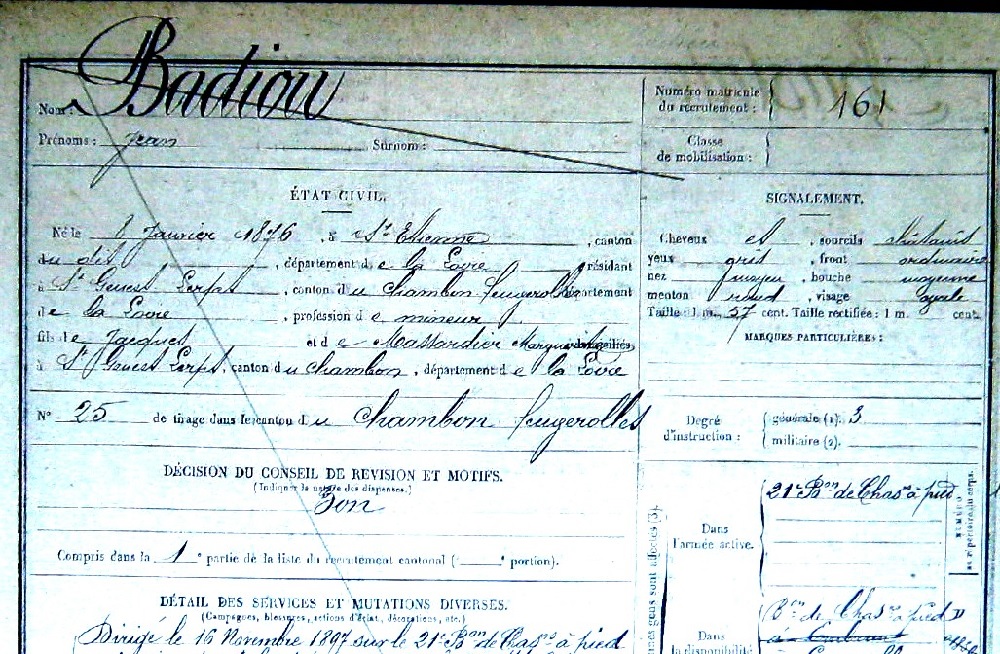 Badiou
Nom :
Numéro matricule
du recrutement :
161
Prénoms : Jean
Surnom :
Classe
de mobilisation :
ÉTAT CIVIL.
SIGNALEMENT.
Né le 8 Janvier 1876, à St Etienne, canton
du dit, département de la Loire, résidant
à St Genest Lerpt, canton du Chambon Feugerolles, département
de la Loire, profession de mineur
fils de Jacques et de Massardier Marguerite, domiciliés
à St Genest Lerpt, canton du Chambon, département de la Loire
Cheveux et, sourcils châtains
yeux gris, front ordinaire
nez moyen, bouche moyenne
menton rond, visage ovale
Taille : 1 m. 57 cent. Taille rectifiée : 1 m. cent.
MARQUES PARTICULIÈRES :
N° 25 de tirage dans le canton du Chambon Feugerolles
Degré
d'instruction :
générale (1). 3
militaire (2).
DÉCISION DU CONSEIL DE REVISION ET MOTIFS.
(Indiquer la nature des dispenses.)
Bon
Compris dans la 1e partie de la liste du recrutement cantonal ( e portion).
DÉTAIL DES SERVICES ET MUTATIONS DIVERSES.
(Campagnes, blessures, actions d'éclat, décorations, etc.)
Dirigé le 16 Novembre 1897 sur le 21e Bon de Chasrs à pied
Dans
l'armée active.
21e Bon de Chasrs à pied
NUMÉRO
au répertoire du corps.
Dans
la disponibilité
Bon de Chasrs à pied